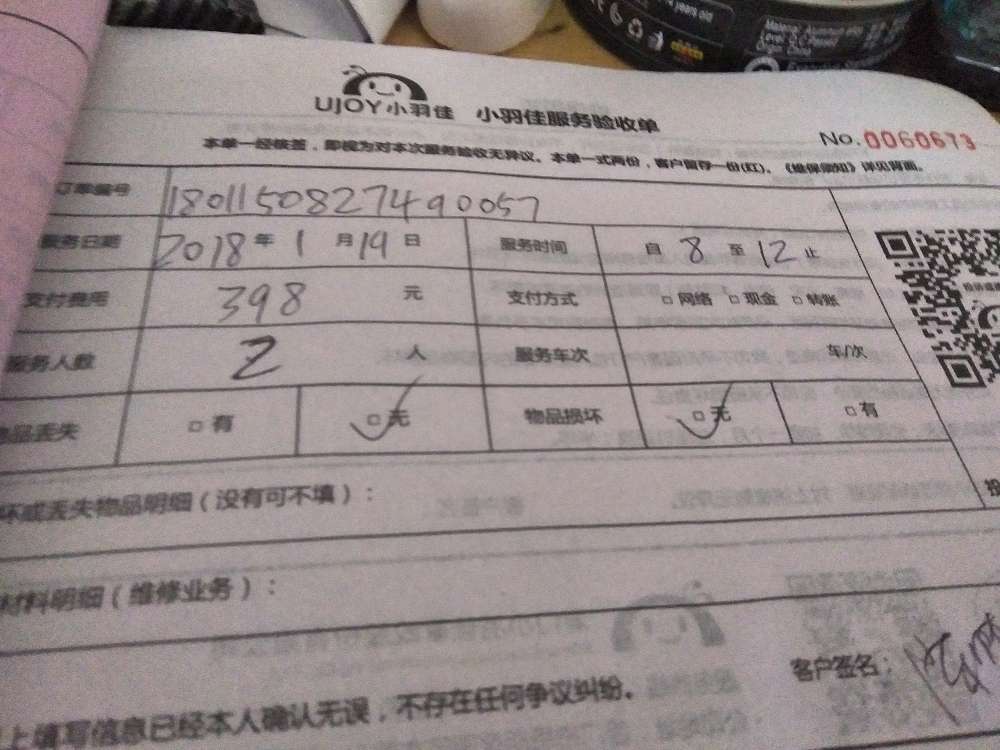 UJOY小羽佳 小羽佳服务验收单
No.0060673
本单一经核签，即视为对本次服务验收无异议。本单一式两份，客户留存一份(红)。《维保须知》详见背面。
订单编号 180115082749 0057
服务日期 2018年1月19日 服务时间 自8至12止
支付费用 398元 支付方式 □网络 □现金 □转账
服务人数 2人 服务车次 车/次
物品丢失 □有 □无 物品损坏 □无 □有
坏或丢失物品明细（没有可不填）：
材料明细（维修业务）：
客户签名：
上填写信息已经本人确认无误，不存在任何争议纠纷。